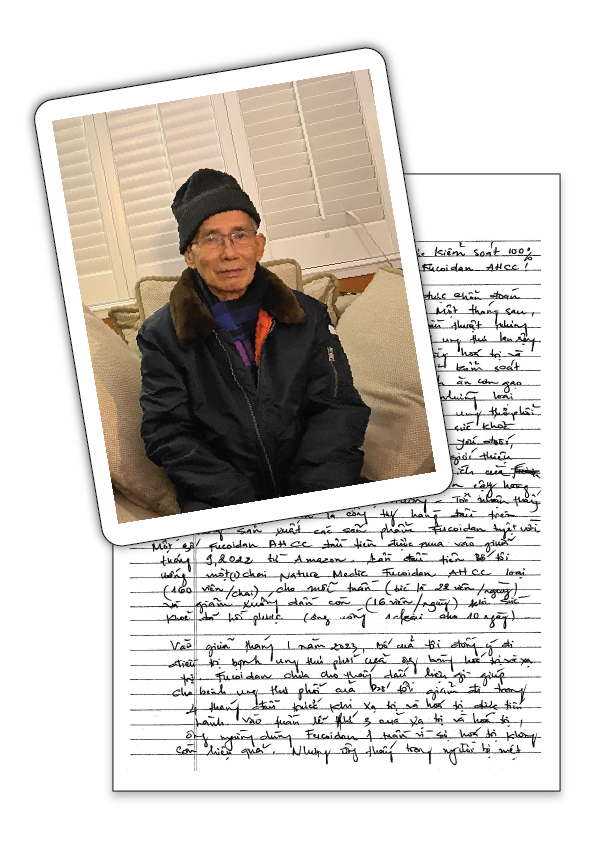 kiểm soát 100%
Fucoidan AHCC!
được chẩn đoán
Một tháng sau,
thuật nhưng
ung thư lan rộng
hoá trị và
kiểm soát
ăn cơm gạo
những loại
ung thư phổi
sức khoẻ
yếu đuối,
giới thiệu
ích của
cây hồng
Tôi nhận thấy
là công ty hàng đầu trên
sản xuất các sản phẩm Fucoidan tuyệt vời
Một số Fucoidan AHCC đầu tiên được mua vào giữa
tháng 9, 2022 từ Amazon. Lần đầu tiên Bố tôi
uống một (1) chai Nature Medic Fucoidan AHCC loại
(160 viên/chai), cho mỗi tuần (tức là 22 viên/ngày)
và giảm xuống dần còn (16 viên/ngày) khi sức
khoẻ đã hồi phục (ông uống 1 chai cho 10 ngày)
Vào giữa tháng 1 năm 2023, Bố của tôi đồng ý đi
điều trị bệnh ung thư phổi của ông bằng hoá trị và xạ
trị. Fucoidan chưa cho thấy dấu hiệu gì giúp
cho bệnh ung thư phổi của Bố tôi giảm đi trong
4 tháng đầu trước khi xạ trị và hoá trị được tiến
hành. Vào tuần lễ thứ 3 của xạ trị và hoá trị,
ông ngưng dùng Fucoidan 1 tuần vì sợ hoá trị không
còn hiệu quả. Nhưng ông thấy trong người bị mệt